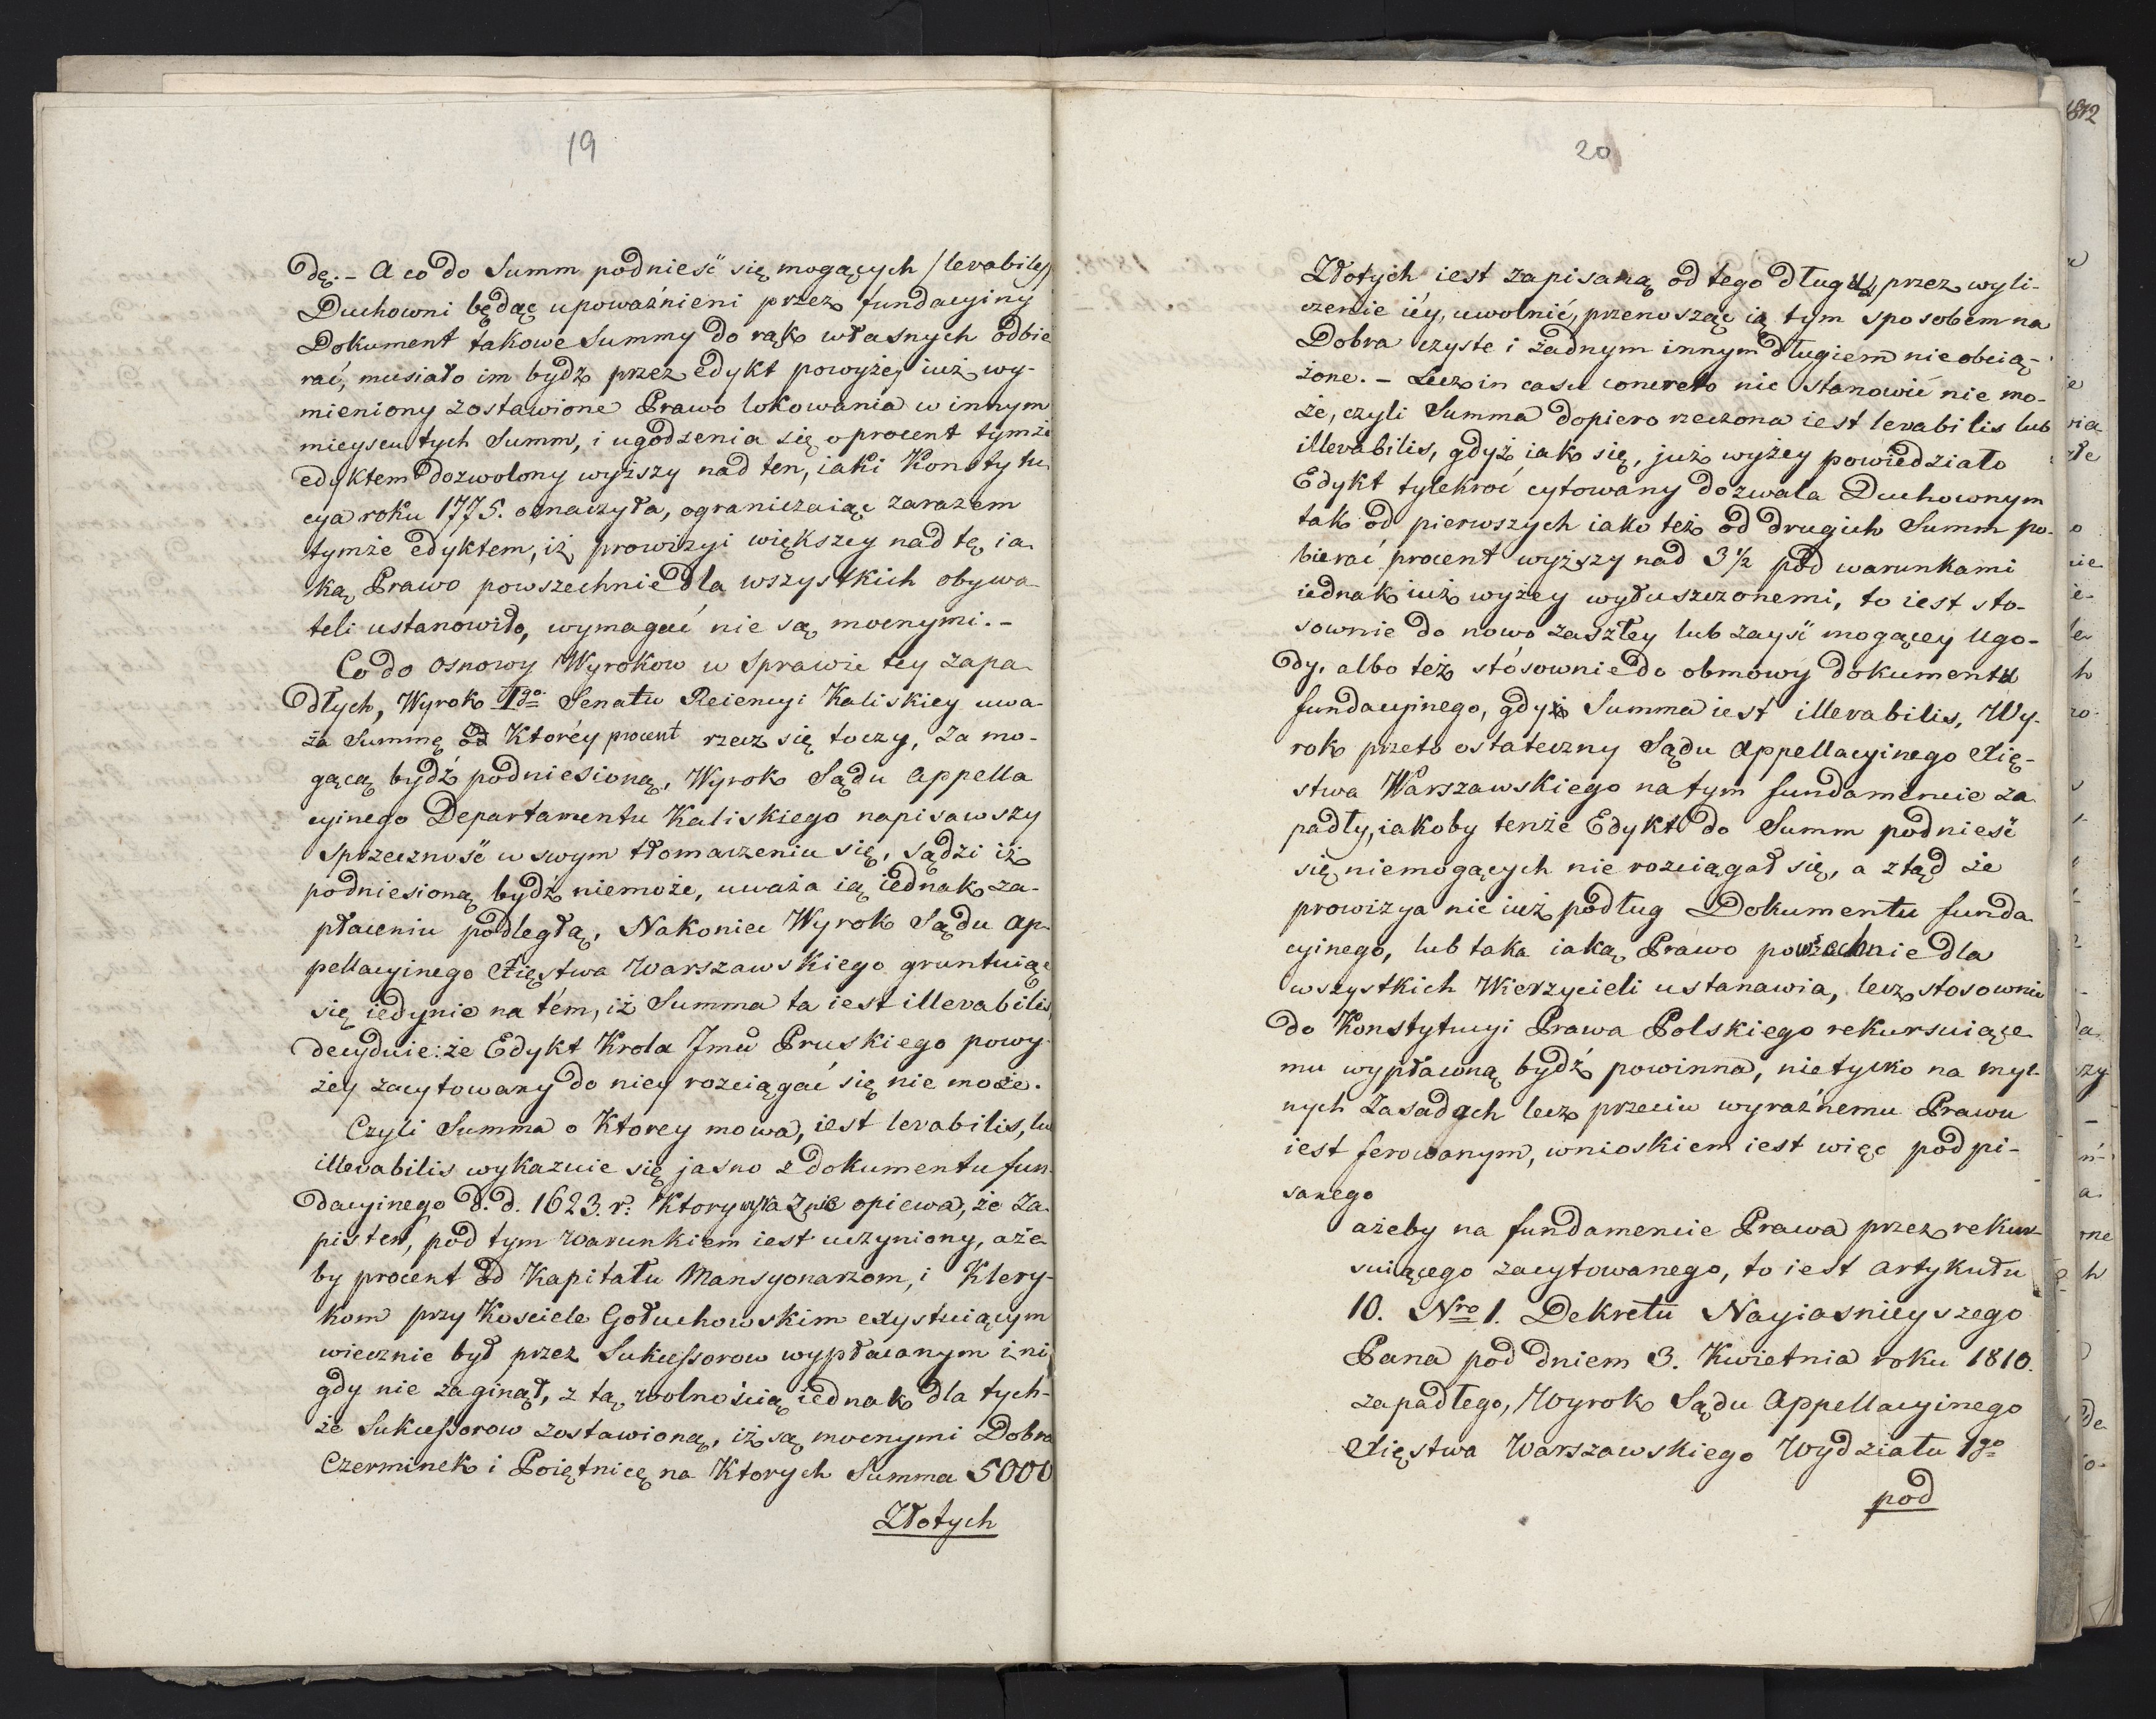 19
dę. – A co do Summ podnieść się mogących /levabiles/
Duchowni będąc upoważnieni przez fundacyiny
Dokument takowe Summy do rąk własnych odbie
rać, musiało im bydź przez edykt powyżey iuż wy-
mieniony zostawione Prawo lokowania w innym
mieyscu tych Summ, i ugodzenia się o procent tymże
edyktem dozwolony wyższy nad ten, iaki Konstytu
cya roku 1775. oznaczyła, ograniczaiąc zarazem
tymże edyktem, iż prowizyi większey nad tę, ia-
ką Prawo powszechnie dla wszystkich obywa-
teli ustanowiło, wymagać nie są mocnymi. –
Co do osnowy Wyrokow w Sprawie tey zapa-
dłych, Wyrok Igo Senatu Reiencyi Kaliskiey uwa-
ża Summę od Ktoréy procent rzecz się toczy, za mo-
gącą bydź podniesioną, Wyrok Sądu Appella
cyinego Departamentu Kaliskiego napisawszy
sprzeczność w swym tłomaczeniu się, sądzi iż
podniesioną bydź niemoże, uważa ią iednak za-
płaceniu podległą, Nakoniec Wyrok Sądu Ap-
pellacyinego Xięstwa Warszawskiego gruntuiąc
się iedynie na tém, iż Summa ta iest illevabilis,
decyduie: że Edykt Krola Jmci Pruskiego powy-
żey zacytowany do niey rozciągać się nie może.
Czyli Summa o Ktorey mowa, iest levabilis, lub
illevabilis wykazuie się jasno z dokumentu fun-
dacyinego d. d. 1623. r. Ktory wyraźnie opiewa, że Za-
pis ten, pod tym warunkiem iest uczyniony, aże-
by procent od Kapitału Mansyonarzom, i Klery-
kom przy Kosciele Gołuchowskim exystuiącym
wiecznie był przez Sukcessorow wypłacanym i ni
gdy nie zaginął, z tą wolnością iednak dla tych-
że Sukcessorow zostawioną, iż są mocnymi Dobra
Czerminek i Poiętnicę na Ktorych Summa 5000
Złotych
20
Złotych iest zapisaną od tego długu, przez wyli-
czenie iéy, uwolnić, przenosząc ią tym sposobem na
Dobra czyste i żadnym innym długiem nie obcią-
żone. – Lecz in casu concreto nic stanowić nie mo-
że, czyli Summa dopiero rzeczona iest levabilis lub
illevabilis, gdyż iak się, już wyżey powiedziało
Edykt tylekroć cytowany dozwala Duchownym
tak od pierwszych iako też od drugich Summ po-
bierać procent wyższy nad 3 1/2 pod warunkami
iednak iuż wyżey wyłuszczonemi, to iest sto-
sownie do nowo zaszłey lub zayść mogącey Ugo-
dy, albo też stósownie do obmowy dokumentu
fundacyinego, gdyż Summa iest illevabilis, Wy-
rok przeto ostateczny Sądu Appellacyinego Xię-
stwa Warszawskiego na tym fundamencie za
padły, iakoby tenże Edykt do Summ podnieść
się niemogących nie rozciągał się, a ztąd że
prowizya nie iuż podług Dokumentu funda-
cyinego, lub taka iaką Prawo powszechnie dla
wszystkich Wierzycieli ustanawia, lecz stosownie
do Konstytucyi Prawa Polskiego rekursuiące-
mu wypłaconą bydź powinna, nietylko na myl-
nych Zasadach lecz przeciw wyraźnemu Prawu
iest ferowanym, wnioskiem iest więc podpi-
sanego
ażeby na fundamencie Prawa przez rekur-
suiącego zacytowanego, to iest artykułu
10. Nro 1. Dekretu Nayiasnieyszego
Pana pod dniem 3. Kwietnia roku 1810.
zapadłego, Wyrok Sądu Appellacyinego
Xięstwa Warszawskiego Wydziału 1go
pod